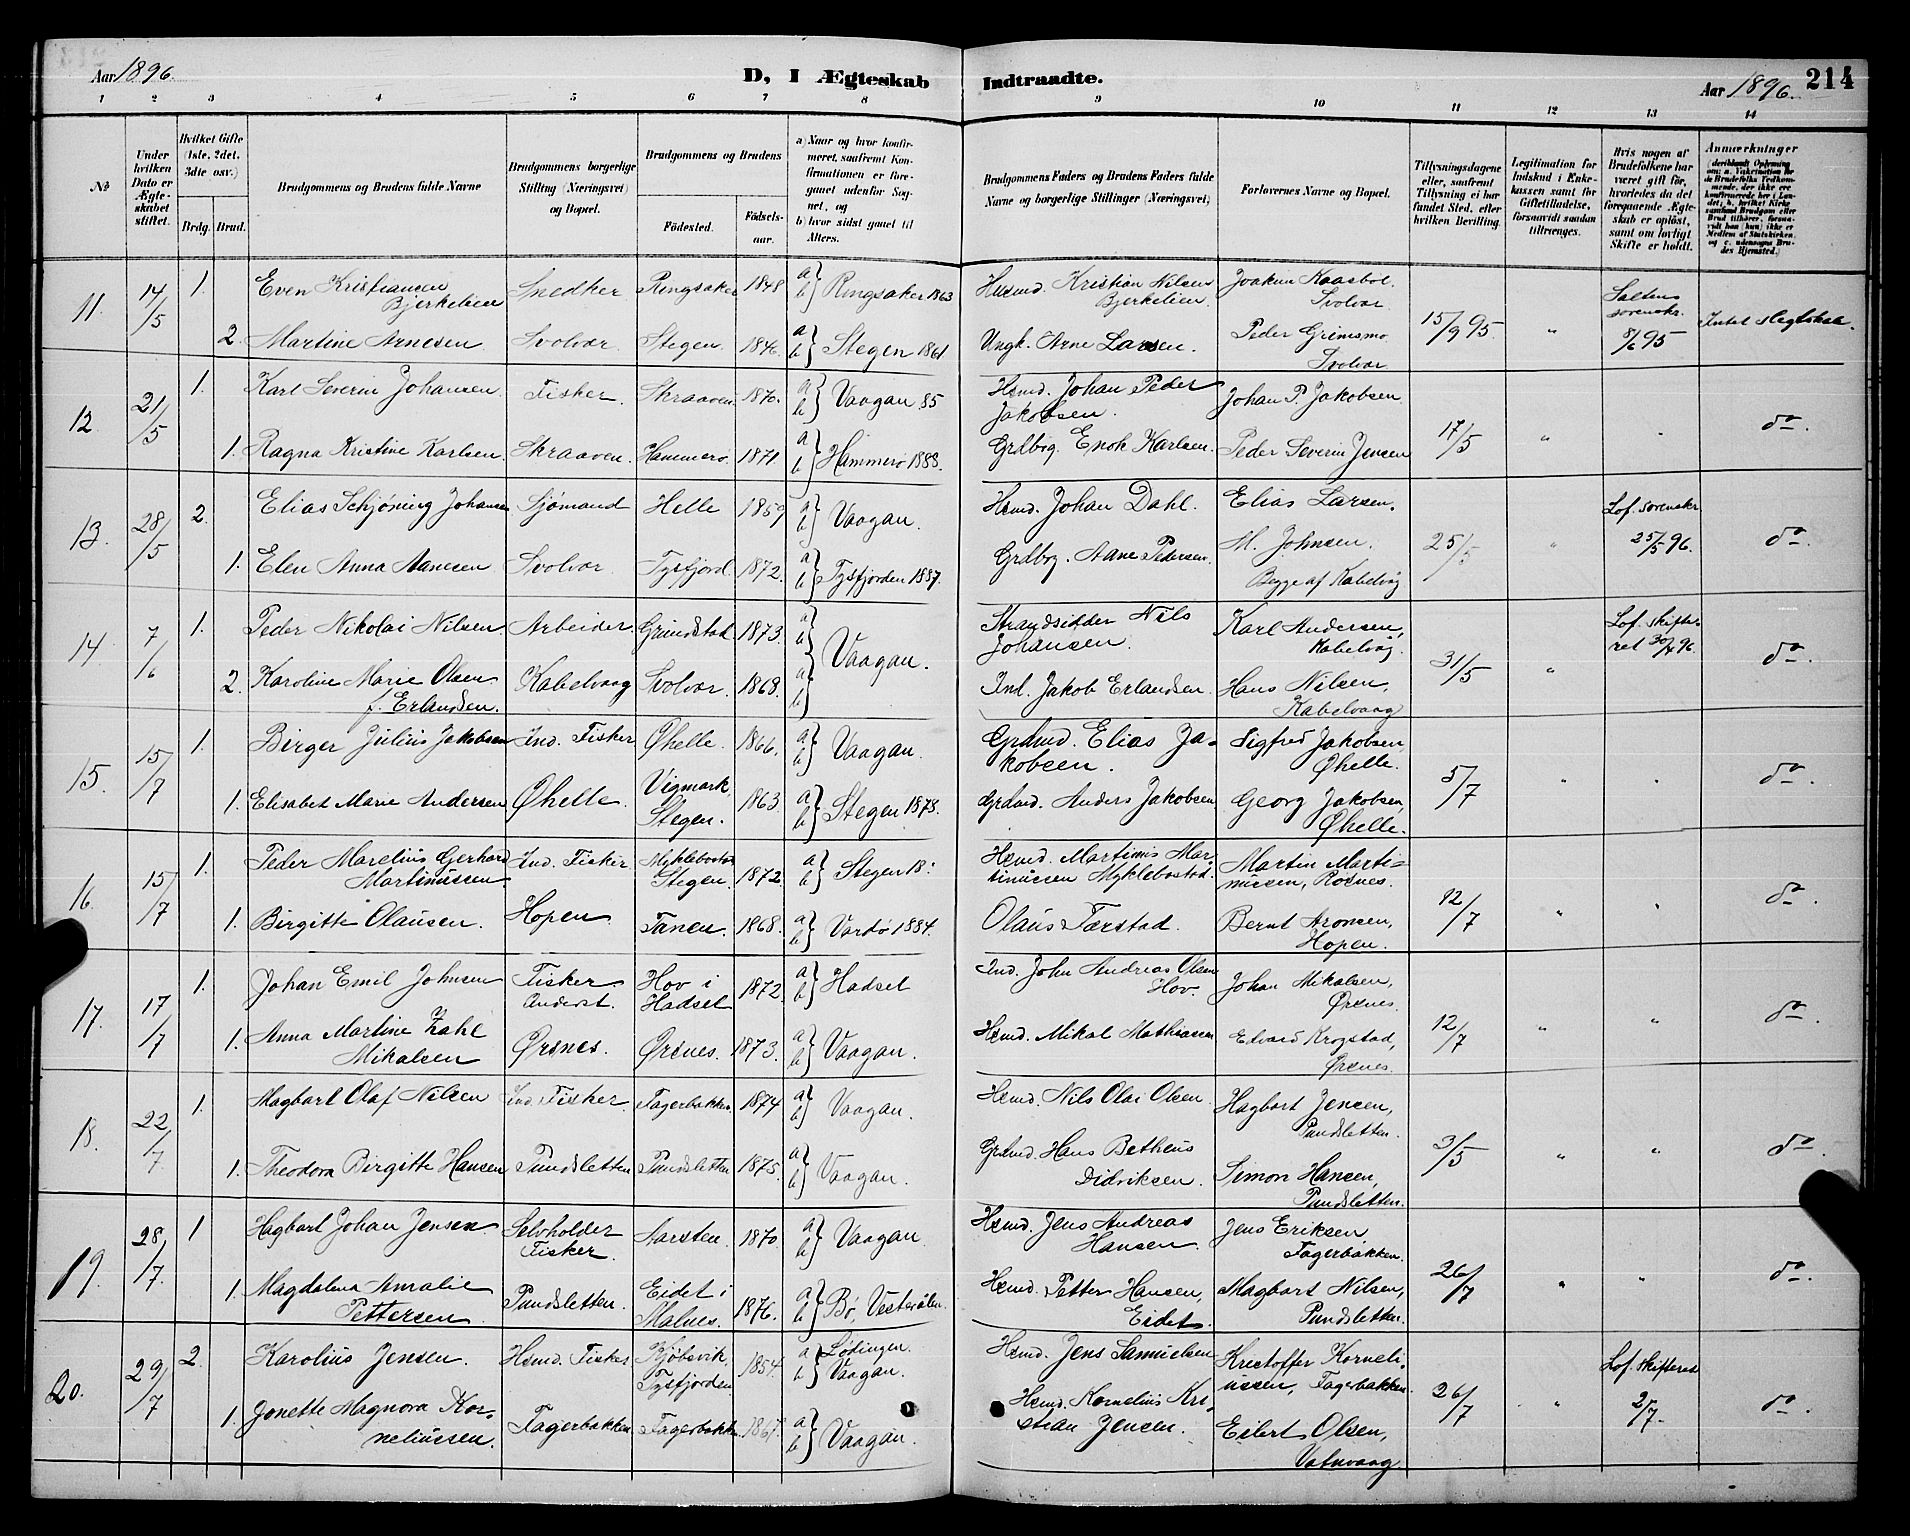 Aar 1896.
D, I Ægteskab Indtraadte.
Aar 1896.
214
1 2 3 4 5 6 7 8 9 10 11 12 13 14
№
Under hvilken Dato er Ægteskabet stiftet.
Hvilket Gifte (1ste, 2det, 3dte osv.)
Brdg. Brud.
Brudgommens og Brudens fulde Navne
Brudgommens borgerlige Stilling (Næringsvei) og Bopæl.
Brudgommens og Brudens
Fødested.
Fødselsaar.
a) Naar og hvor konfirmeret, saafremt Konfirmationen er foregaaet udenfor Sognet, og
b) hvor sidst gaaet til Alters.
Brudgommens Faders og Brudens Faders fulde Navne og borgerlige Stillinger (Næringsvei)
Forlovernes Navne og Bopæl.
Tillysningsdagene eller, saafremt Tillysning ei har fundet Sted, efter hvilken Bevilling.
Legitimation for Indskud i Enkekassen samt for Giftetilladelse, forsaavidt saadan tiltrænges.
Hvis nogen af Brudefolkene har været gift før, hvorledes da det foregaaende Ægteskab er opløst, samt om lovligt Skifte er holdt.
Anmærkninger
11. 14/5 1. Even Kristiansen Bjerkelien Snedker Ringsaker 1848 a b } Ringsaker 1863 Husmd. Kristian Nilsen Bjerkelien Joakim Kaasbøl. Svolvær 15/9 95 " Saltens sorenskr. 8/6 95 Intet slegtskab.
2. Martine Arnesen Svolvær. Stegen. 1846. a b } Stegen 1861 Ungk. Arne Larsen. Peder Grimsmo Svolvær
12. 21/5 1. Karl Severin Johansen Fisker. Skraaven 1870. a b } Vaagan 85 Hsmd. Johan Peder Jakobsen. Johan P. Jakobsen 17/5 " " do
1. Ragna Kristine Karlsen Skraaven. Hammerø 1871. a b } Hammerø 1888. Grdbrg. Enok Karlsen. Peder Severin Jensen
13. 28/5 2. Elias Schjøning Johansen Sjømand Helle 1859 a b } Vaagan. Hsmd. Johan Dahl. Elias Larsen. 25/5 " Lof. sorenskr 25/5 96. do
1. Elen Anna Aanesen Svolvær Tysfjord. 1872. a b } Tysfjorden 1887. Grdbrg. Aane Pedersen. M. Johnsen. Begge af Kabelvåg
14. 7/6 1. Peder Nikolai Nilsen. Arbeider. Grundstad 1873. a b } Vaagan. Strandsidder Nils Johansen. Karl Andersen, Kabelvåg. 31/5 " Lof. skifteret 30/4 96. do
2. Karoline Marie Olsen f. Erlandsen. Kabelvaag Svolvær. 1868. a b Ind. Jakob Erlandsen. Hans Nilsen, Kabelvaag
15. 15/7 1. Birger Julius Jakobsen Ind. Fisker Øhelle. 1866. a b } Vaagan. Grdmd. Elias Jakobsen. Sigfred Jakobsen Øhelle. 5/7 " " do
1. Elisabet Marie Andersen Øhelle. Vigmark Stegen. 1863. a b } Stegen 1878. Grdmd. Anders Jakobsen Georg Jakobsen, Øhelle.
16. 15/7 1. Peder Marelius Gerhard Martinussen Ind. Fisker Myklebostad Stegen. 1872 a b } Stegen 18: Hsmd. Martinus Martinussen Myklebostad. Martin Martinussen, Rosnes. 12/7 " " do
1. Birgitte Olausen. Hopen Tanen. 1868. a b } Vardø 1884. Olaus Færstad. Bernt Aronsen, Hopen.
17. 17/7 1. Johan Emil Johnsen Fisker Anderst. Hov i Hadsel 1872. a b } Hadsel Ind. John Andreas Olsen Hov. Johan Mikalsen, Ørsnes. 12/7 " " do
1. Anna Martine Zahl Mikalsen Ørsnes. Ørsnes. 1873. a b } Vaagan. Hsmd. Mikal Mathiassen Edvard Krogstad, Ørsnes.
18. 22/7 1. Magbart Olaf Nilsen Ind. Fisker. Fagerbakken 1874 a b } Vaagan. Hsmd. Nils Olai Olsen. Hagbart Jensen, Pundsletten. 3/5 " " do
1. Theodora Birgitte Hansen Pundsletten Pundsletten 1875. a b } Vaagan. Grdmd. Hans Betheus Didriksen. Simon Hansen, Pundsletten.
19. 28/7 1 Hagbart Johan Jensen Selvholder Fisker. Aarsten. 1870 a b } Vaagan. Hsmd. Jens Andreas Hansen. Jens Eriksen Fagerbakken. 26/7 " " do
1. Magdalena Amalie Pettersen Pundsletten. Eidet i Malnes. 1876. a b } Bø, Vesterålen Hsmd. Petter Hansen, Eidet. Magbart Nilsen, Pundsletten.
20. 29/7 2. Karolius Jensen. Hsmd. Fisker Kjøbsvik, Tysfjorden 1854. a b } Lødingen. Vaagan. Hsmd. Jens Samuelsen Kristoffer Korneliussen, Fagerbakken. 26/7 " Lof. skifteret 2/7. do
1. Jonette Magnora Korneliussen. Fagerbakken Fagerbakk. 1867. a b } Vaagan. Hsmd. Kornelius Kristian Jensen. Eilert Olsen, Vatnvaag.